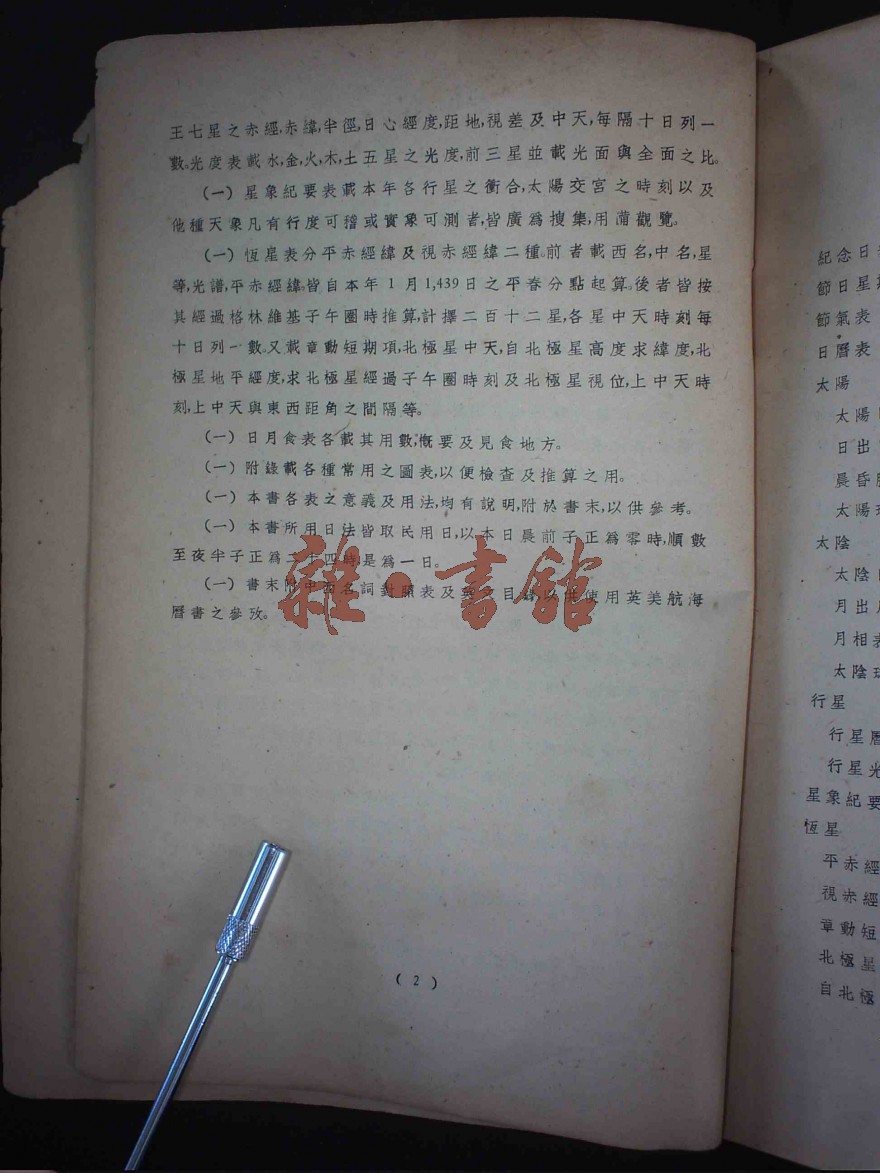 王七星之赤經,赤緯,半徑,日心經度,距地,視差及中天,每隔十日列一
數。光度表載水,金,火,木,土五星之光度,前三星並載光面與全面之比。
(一) 星象紀要表載本年各行星之衝合,太陽交宮之時刻以及
他種天象凡有行度可稽或實象可測者,皆廣爲搜集,用備觀覽。
(一) 恆星表分平赤經緯及視赤經緯二種。前者載西名,中名,星
等,光譜,平赤經緯。皆自本年1月1,439日之平春分點起算。後者皆按
其經過格林維基子午圈時推算,計擇二百十二星,各星中天時刻每
十日列一數。又載章動短期項,北極星中天,自北極星高度求緯度,北
極星地平經度,求北極星經過子午圈時刻及北極星視位,上中天時
刻,上中天與東西距角之間隔等。
(一) 日月食表各載其用數,概要及見食地方。
(一) 附錄載各種常用之圖表,以便檢查及推算之用。
(一) 本書各表之意義及用法,均有說明,附於書末,以供參考。
(一) 本書所用日法皆取民用日,以本日晨前子正爲零時,順數
至夜半子正爲二十四時,是爲一日。
(一) 書末附中西名詞對照表及英文目錄,以供使用英美航海
曆書之參攷。
(2)
雜·書館
紀念日
節日星
節氣表
日曆表
太陽
太陽
日出
晨昏
太陽
太陰
太陰
月出
月相表
太陰
行星
行星曆
行星光
星象紀要
恆星
平赤經
視赤經
章動短
北極星
自北極